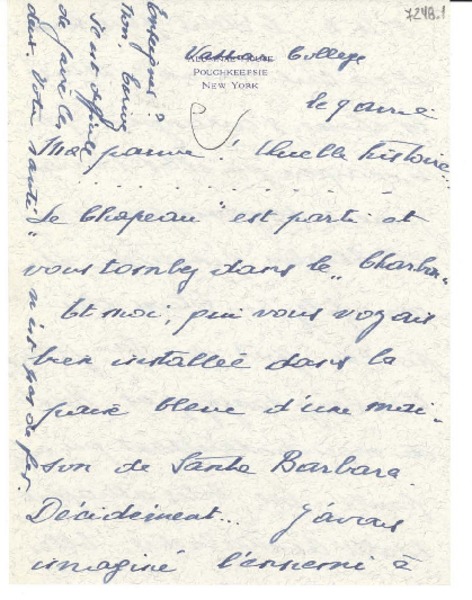 7248.1
Vassar College
POUGHKEEPSIE
NEW YORK
le 9 avril
Ma pauvre ! Quelle histoire.
. . . . . . . . . . . . . .
"Le Chapeau" est parti et
vous tombez dans le "Charbon"
Et moi, qui vous voyais
bien installée dans la
paix bleue d'une mai-
son de Santa Barbara.
Décidément... j'avais
imaginé l'ennemi à
Enseigner ?
non. Ecrire
de faire les
deux. Votre santé
n'est pas de fer.